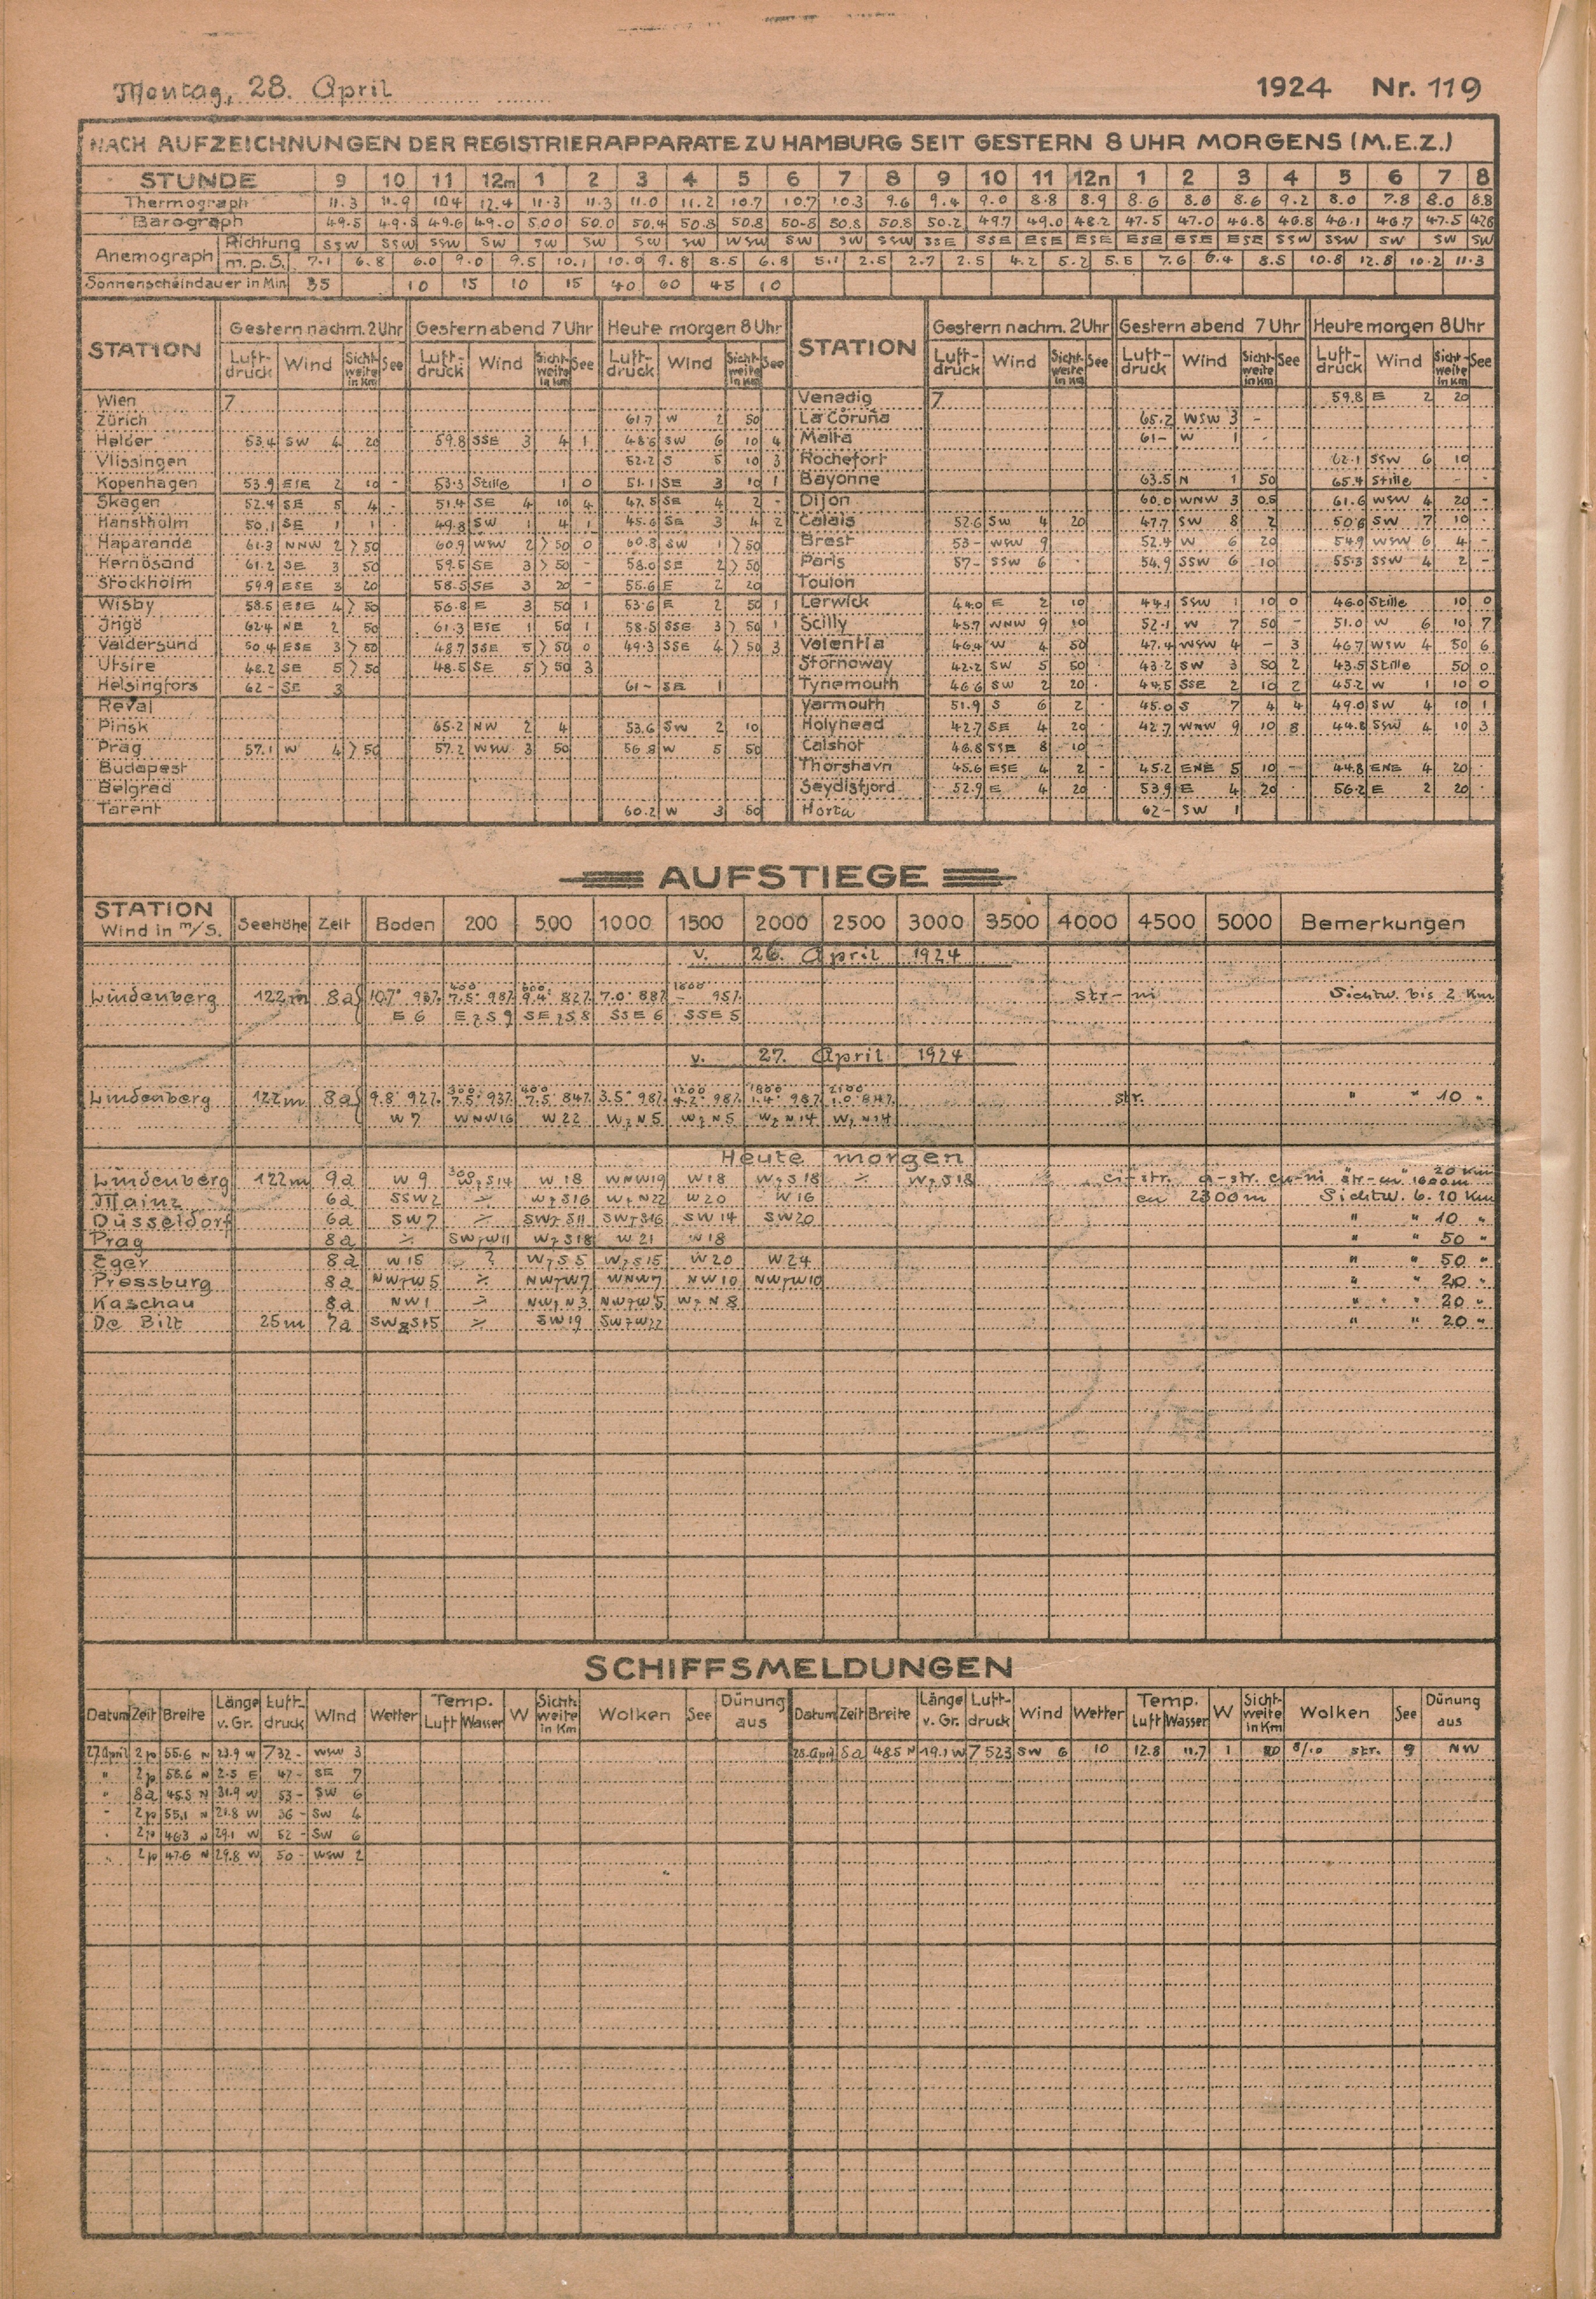 Montag, 28. April 1924 Nr. 119
NACH AUFZEICHNUNGEN DER REGISTRIERAPPARATE ZU HAMBURG SEIT GESTERN 8 UHR MORGENS (M.E.Z.)
STUNDE 9 10 11 12m 1 2 3 4 5 6 7 8 9 10 11 12n 1 2 3 4 5 6 7 8
Thermograph 11.3 11.9 10.4 12.4 11.3 11.3 11.0 11.2 10.7 10.7 10.3 9.6 9.4 9.0 8.8 8.9 8.6 8.8 8.6 9.2 8.0 7.8 8.0 8.8
Barograph 49.5 49.5 49.6 49.0 50.0 50.0 50.4 50.8 50.8 50.8 50.8 50.8 50.2 49.7 49.0 48.2 47.5 47.0 46.8 46.8 46.1 46.7 47.5
Anemograph Richtung SSW SSW SSW SW SW SW SW SW WSW SW SW SSW SSE SSE ESE ESE ESE ESE ESE SSW SSW SW SW SW
m.p.S. 7.1 6.8 6.0 9.0 9.5 10.1 10.0 9.8 8.5 6.8 5.1 2.5 2.7 2.5 4.2 5.2 5.5 7.6 6.4 8.5 10.8 12.8 10.2 11.3
Sonnenscheindauer in Min 35 10 15 10 15 40 60 45 10
STATION Gestern nachm. 2 Uhr Gestern abend 7 Uhr Heute morgen 8 Uhr STATION Gestern nachm. 2 Uhr Gestern abend 7 Uhr Heute morgen 8 Uhr
Luft-druck Wind Sicht-weite in Km See Luft-druck Wind Sicht-weite in Km See Luft-druck Wind Sicht-weite in Km See Luft-druck Wind Sicht-weite in Km See Luft-druck Wind Sicht-weite in Km See Luft-druck Wind Sicht-weite in Km See
Wien 7 Venedig 7 59.8 E 2 20
Zürich 61.7 W 2 50 La Coruña 65.2 WSW 3 -
Helder 53.4 SW 4 20 59.8 SSE 3 4 1 48.6 SW 6 10 4 Malta 61- W 1 -
Vlissingen 52.2 S 5 10 3 Rochefort 62.1 SSW 6 10
Kopenhagen 53.9 ESE 2 10 - 53.3 Stille 1 0 51.1 SE 3 10 1 Bayonne 63.5 N 1 50 65.4 Stille - -
Skagen 52.4 SE 5 4 - 51.4 SE 4 10 4 47.5 SE 4 2 - Dijon 60.0 WNW 3 0.5 61.6 WSW 4 20 -
Hanstholm 50.1 SE 1 1 49.8 SW 1 4 1 45.6 SE 3 4 2 Calais 52.6 SW 4 20 47.7 SW 8 2 50.6 SW 7 10 -
Haparanda 61.3 NNW 2 >50 60.9 WSW 2 >50 0 60.8 SW 1 >50 Brest 53- WSW 9 52.4 W 6 20 54.9 WSW 6 4 -
Hernösand 61.2 SE 3 50 59.5 SE 3 >50 - 58.0 SE 2 >50 Paris 57- SSW 6 54.9 SSW 6 10 55.3 SSW 4 2 -
Stockholm 59.9 ESE 3 20 58.5 SE 3 20 - 55.6 E 2 20 Toulon
Wisby 58.5 ESE 4 >50 56.8 E 3 50 1 53.6 E 2 50 1 Lerwick 44.0 E 2 10 44.1 SSW 1 10 0 46.0 Stille 10 0
62.4 NE 2 50 61.3 ESE 1 50 1 58.5 SSE 3 >50 1 Scilly 45.7 WNW 9 10 52.1 W 7 50 - 51.0 W 6 10 7
Valdersund 50.4 ESE 3 >50 48.7 SSE 5 >50 0 49.3 SSE 4 >50 3 Valentia 46.4 W 4 50 47.4 WSW 4 - 3 46.7 WSW 4 50 6
Utsire 48.2 SE 5 >50 48.5 SE 5 >50 3 Stornoway 42.2 SW 5 50 43.2 SW 3 50 2 43.5 Stille 50 0
Helsingfors 62- SE 3 61- SE 1 Tynemouth 46.6 SW 2 20 44.5 SSE 2 10 2 45.2 W 1 10 0
Reval Yarmouth 51.9 S 6 2 45.0 S 7 4 4 49.0 SW 4 10 1
Pinsk 65.2 NW 2 4 53.6 SW 2 10 Holyhead 42.7 SE 4 20 42.7 WNW 9 10 8 44.8 SSW 4 10 3
Prag 57.1 W 4 >50 57.2 WSW 3 50 56.8 W 5 50 Calshot 46.8 SSE 8 10
Budapest Thorshavn 45.6 ESE 4 2 - 45.2 ENE 5 10 - 44.8 ENE 4 20
Belgrad Seydisfjord 52.9 E 4 20 53.9 E 4 20 56.2 E 2 20
Tarent 60.2 W 3 50 Horta 62- SW 1
AUFSTIEGE
STATION Wind in m/s. Seehöhe Zeit Boden 200 500 1000 1500 2000 2500 3000 3500 4000 4500 5000 Bemerkungen
v. 26. April 1924
400 600 1600
Lindenberg 122m 8a 10.7° 93% 7.5° 98% 9.4° 82% 7.0° 88% - 95% str-ni Sichtw. bis 2 Km
E 6 E z S 9 SE z S 8 SSE 6 SSE 5
v. 27. April 1924
300 400 1200 1800 2100
Lindenberg 122m 8a 9.8° 92% 7.5° 93% 7.5° 84% 3.5° 98% 98% 1.4° 98% 1.0° 84% str. " " 10 "
W 7 WNW 16 W 22 W z N 5 W z N 5 W z N 14 W z N 14
Heute morgen
Lindenberg 122m 9a W 9 W z S 14 W 18 WNW 19 W 18 W z S 18 ÷ W z S 18 ci-str. a-str. cu-ni str-cu 1600m " " 20 Km
Mainz 6a SSW 2 ÷ W z S 16 W z N 22 W 20 W 16 cu 2300m Sichtw. 6-10 Km
Düsseldorf 6a SW 7 ÷ SW z S 11 SW z S 16 SW 14 SW 20 " " 10 "
Prag 8a ÷ SW z W 11 W z S 18 W 21 W 18 " " 50 "
Eger 8a W 15 ? W z S 5 W z S 15 W 20 W 24 " " 50 "
Pressburg 8a NW z W 5 ÷ NW z W 7 WNW 7 NW 10 NW z W 10 " " 20 "
Kaschau 8a NW 1 ÷ NW z N 3 NW z W 5 W z N 8 " " 20 "
De Bilt 25m 7a SW z S 15 ÷ SW 19 SW z W 22 " " 20 "
SCHIFFSMELDUNGEN
Datum Zeit Breite Länge v. Gr. Luft-druck Wind Wetter Temp. Luft Wasser W Sicht-weite in Km Wolken See Dünung aus Datum Zeit Breite Länge v. Gr. Luft-druck Wind Wetter Temp. Luft Wasser W Sicht-weite in Km Wolken See Dünung aus
27. April 2p 55.6 N 23.9 W 732- WSW 3 28. April 8a 48.5 N 19.1 W 752.3 SW 6 10 12.8 11.7 1 20 8/10 str. 9 NW
" 2p 56.6 N 2.5 E 47- SE 7
" 8a 45.5 N 31.9 W 53- SW 6
" 2p 55.1 N 21.8 W 36- SW 4
" 2p 46.3 N 29.1 W 52- SW 6
" 2p 47.6 N 29.8 W 50- WSW 2